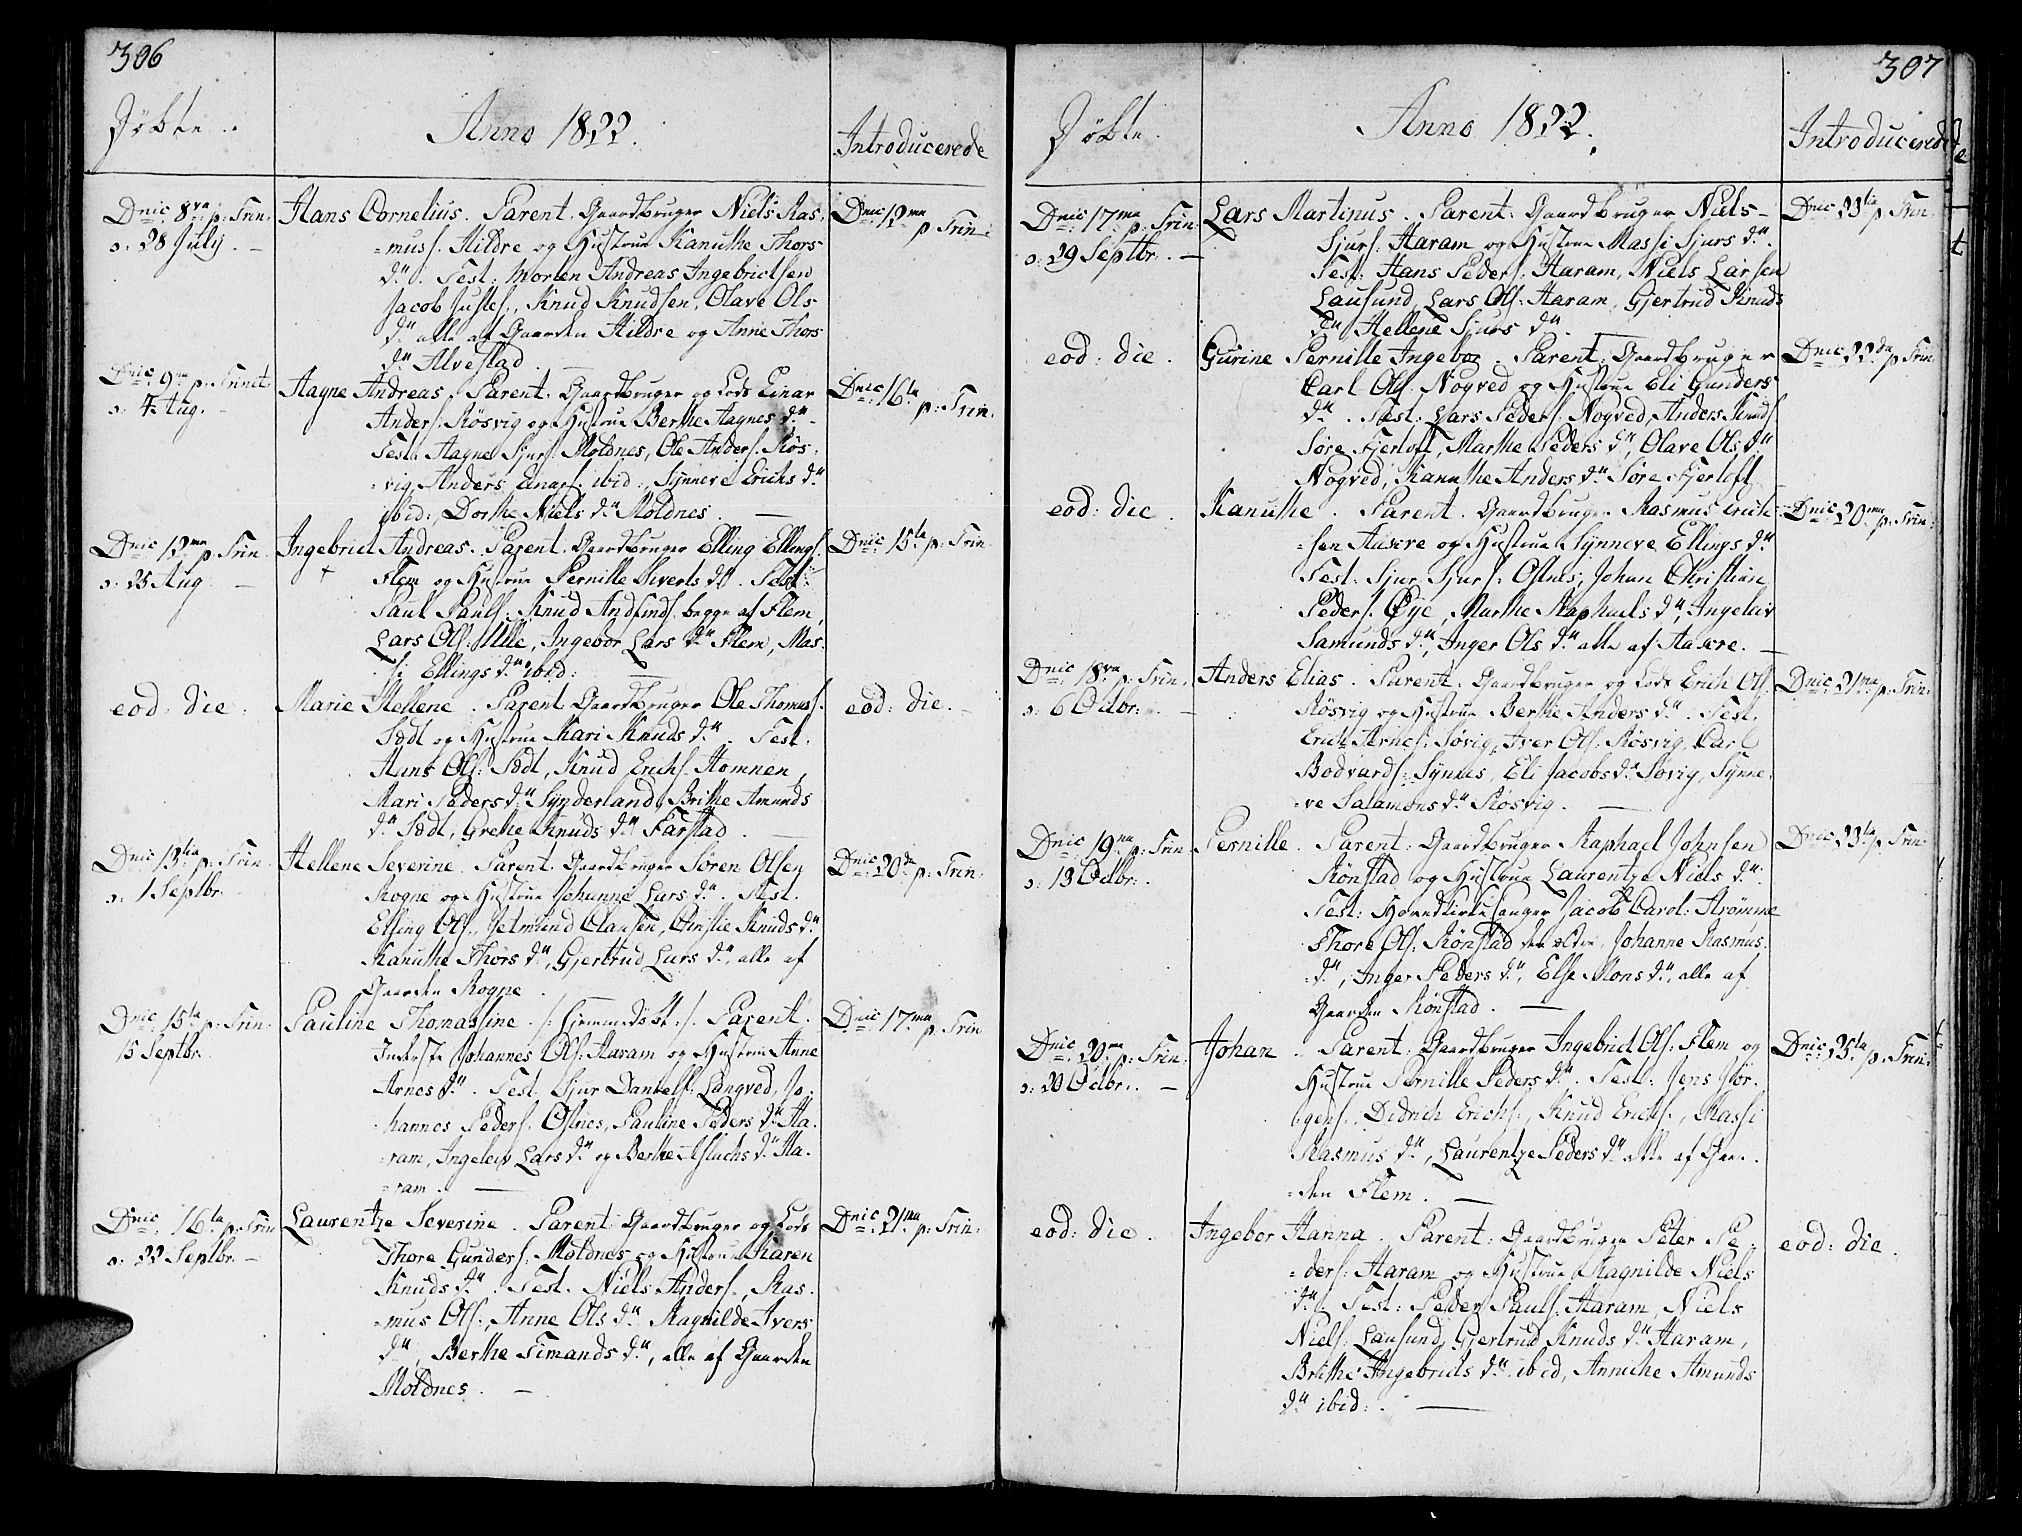 306
Døbte.
Anno 1822.
Introducerede
Dnic 8va p: Trin:
o: 28 July. —
Hans Cornelius. Parent. Gaardbruger Niels Ras-
=muss. Hildre og Hustrue Kanuthe Thors
dtr. Test: Morten Andreas Ingebrictsen
Jacob Justes:, Knud Knudsen, Olave Ols
dtr alle af Gaarden Hildre og Anne Thors
dtr Alvestad. —
Dnic: 12ma p Trin:
Dnic: 9na p: Trinit
o: 4 Aug. —
Hagne Andreas. Parent: Gaardbruger og Lods Einar
Anders: Røsvig og Hustrue Berthe Hagnes dtr —
Test: Hagne Sjurs: Moldnes, Ole Anders: Røs-
=vig, Anders Einars: ibid:, Synneve Erichs dtr
ibid:, Dorthe Niels dtr Moldnes. —
Dnic: 16ta p: Trin:
Dnic: 12ma p Trin:
o: 25 Aug —
Ingebrict Andreas. Parent: Gaardbruger Elling Ellings:
+ Flem og Hustrue Pernille Siverts dtr. Test:
Paul Pauls: Knud Andfinds: begge af Flem,
Lars Ols: Ulle, Ingebor Lars dtr Flem, Mas-
si Ellings dtr ibid: —
Dnic: 15ta p: Trin
eod: die.
Marie Hellene. Parent Gaardbruger Ole Thomass.
Sødt og Hustrue Kari Knuds dtr. Test.
Hans Ols: Sødt, Knud Erichs. Homnen,
Mari Peders dtr Synderland, Brithe Amunds
dtr Sødt, Grethe Knuds dtr Farstad. —
eod: die. —
Dnic: 13tia p: Trin
o: 1 Septbr.
Hellene Severine. Parent. Gaardbruger Søren Olsen
Rogne og Hustrue Johanne Lars dtr. Test.
Elling Ols:, Jetmund Clausen, Cinslie Knuds dtr
Kanuthe Thors dtr, Gjertrud Lars dtr, alle af
Gaarden Rogne.
Dnic: 20da p: Trin:
Dnic: 15ta p: Trin:
15 Septbr:
Pauline Thomassine. /: hjemmedøbt :/. Parent.
Inderste Johannes Ols: Haram og Hustrue Anne
Arnes dtr. Test. Sjur Daniels: Langved, Jo-
hannes Peders. Ostnes, Pauline Peders dtr Ha-
=ram, Ingeleiv Lars dtr og Berthe Aslachs dtr Ha-
=ram. —
Dnic: 17ma p: Trin
Dnic: 16ta p: Trin
o: 22 Septbr. —
Laurentze Severine. Parent Gaardbruger og Lods
Thore Gunders: Moldnes og Hustrue Karen
Knuds dtr. Test. Niels Anders., Ras-
=mus Ols:, Anne Ols dtr Ragnilde Ivers
dtr, Berthe Timands dtr, alle af Gaarden
Moldnes. —
Dnic: 21ma p: Trin:
307
Døbte.
Anno 1822.
Introducerede
Dnic: 17ma p: Trin:
o: 29 Septbr: —
Lars Martinus. Parent: Gaardbruger Niels —
Sjurs: Haram og Hustrue Massi Sjurs dtr.
Test: Hans Peders: Haram, Niels Larsen
Lausund, Lars Ols: Haram, Gjertrud Knuds
dtr Hellene Sjurs dtr.
Dnic 23tia p: Trin:
eod: die.
Gurine Pernille Ingebor. Parent: Gaardbruger
Carl Ols. Nogved og Hustrue Eli Gunders
dtr. Test: Lars Peders: Nogved, Anders Knuds
Søre Fjertoft, Marthe Peders dtr, Olave Ols dtr
Nogved, Kanuthe Anders dtr Søre Fjertoft
Dnic: 22da p: Trin
eod: die.
Kanuthe. Parent. Gaardbruger Rasmus Erich-
=sen Aasere og Hustrue Synneve Ellings dtr
Test: Sjur Sjurs. Ostnes, Johan Christian
Peders: Øye, Marthe Raphaels dtr, Ingeleiv
Samunds dtr, Inger Ols dtr alle af Aasere. —
Dnic: 20ma p: Trin:
Dnic 18va p: Trin.
o: 6 Octbr: —
Anders Elias. Parent: Gaardbruger og Lods Erich Ols.
Røsvig og Hustrue Berthe Anders dtr. Test.
Erich Arnes: Søvig, Iver Ols: Røsvig, Carl
Bodvards: Synnes, Eli Jacobs dtr Søvig, Synne-
=ve Salamons dtr Røsvig. —
Dnic: 21ma p: Trin:
Dnic 19na p: Trin
o: 13 Octbr:.
Pernille. Parent: Gaardbruger Raphael Johnsen
Rønstad og Hustrue Laurentze Niels dtr.
Test: Hovedkirkesanger Jacob Carol: Strømme
Thore Ols. Rønstad den ældre, Johanne Rasmus
dtr, Inger Peders dtr, Else Mons dtr, alle af
Gaarden Rønstad. —
Dnic: 23tia p: Trin:
Dnic: 20ma p: Trin:
o: 20 Octbr:. —
Johan. Parent: Gaardbruger Ingebrict Ols: Flem og
Hustrue Pernille Peders dtr. Test: Jens Jør-
gens:, Didrich Erichs:, Knud Erichs., Massi
Rasmus dtr, Laurentze Peders dtr alle af Gaar-
=den Flem. —
Dnic: 25ta p: Trin:
eod: die.
Ingebor Hanna. Parent: Gaardbruger Peter Pe-
=ders: Haram og Hustrue Ragnilde Niels
dtr. Test: Peder Pauls. Haram, Niels
Niels: Lausund, Gjertrud Knuds dtr Haram,
Brithe Ingebricts dtr ibid, Anniche Amunds
dtr ibid:. —
eod: die.